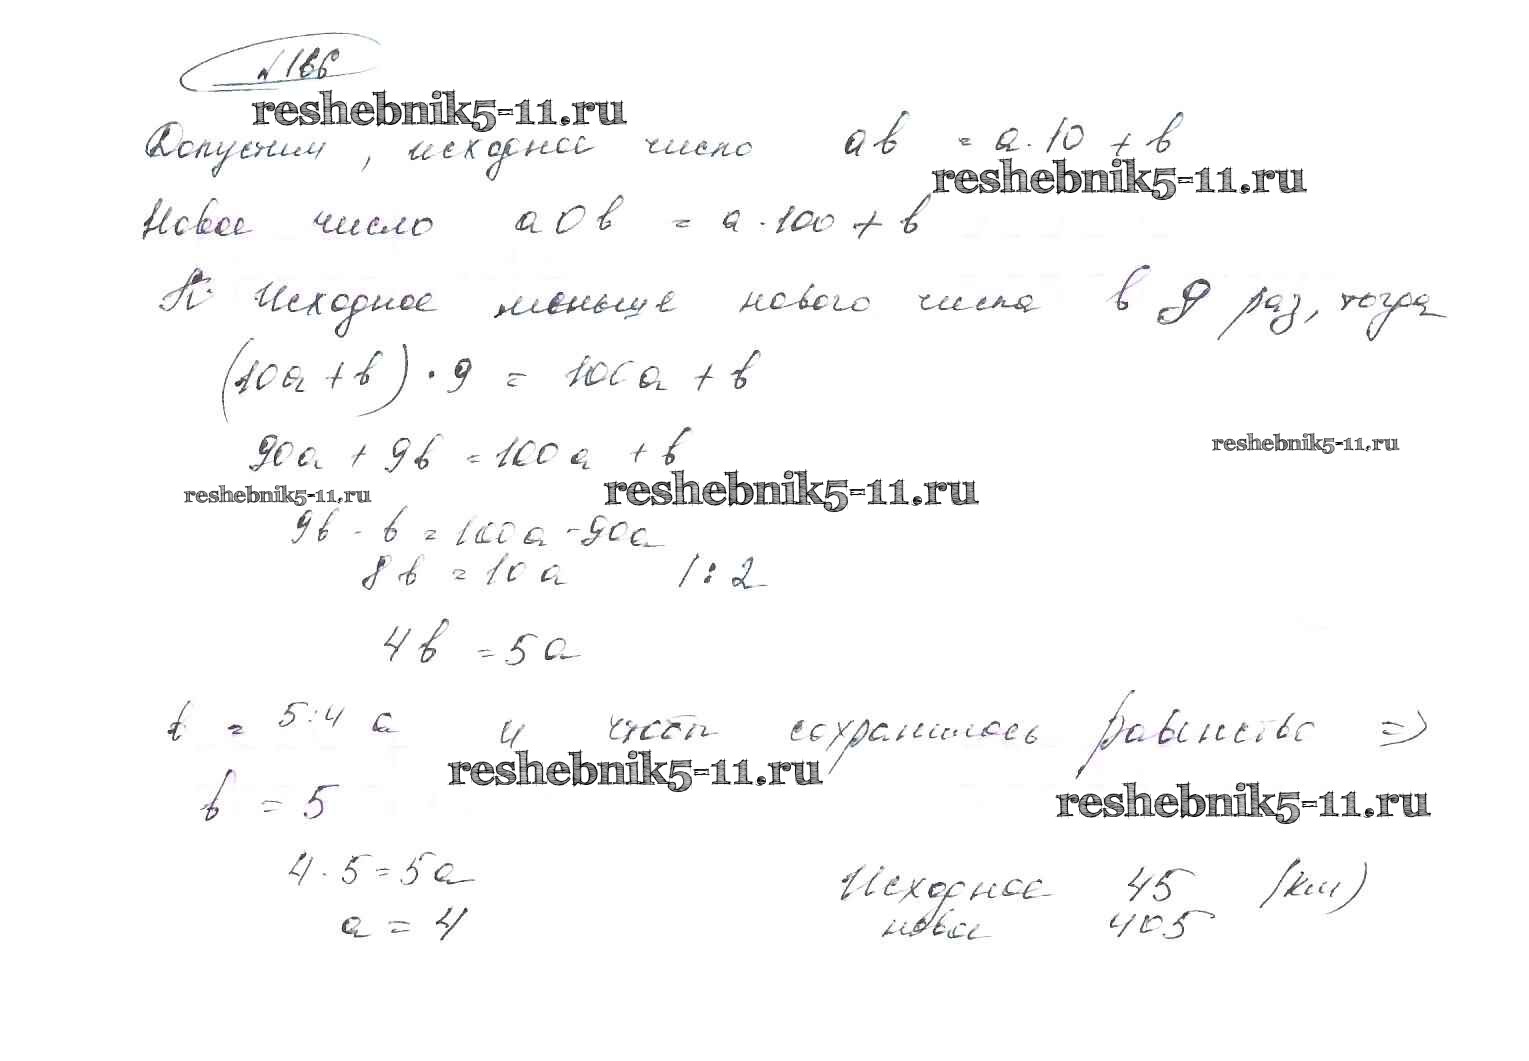 №166
reshebnik5-11.ru
Допустим, исходное число ab = a·10 + b
reshebnik5-11.ru
Новое число a0b = a·100 + b
Исходное меньше нового числа в 9 раз, тогда
(10a + b)·9 = 100a + b
reshebnik5-11.ru
90a + 9b = 100a + b
reshebnik5-11.ru reshebnik5-11.ru
9b - b = 100a - 90a
8b = 10a /:2
4b = 5a
b = 5:4 a и чтобы сохранилось равенство =>
reshebnik5-11.ru
b = 5
reshebnik5-11.ru
4·5 = 5a Исходное 45 (км)
a = 4 новое 405